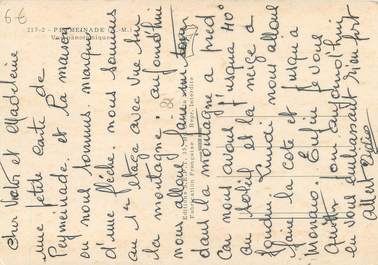 6 €
217-2 - PEYMEINADE (A.-M.)
Vue panoramique
Cher Victor et Madeleine
une petite carte de
Peymeinade. et la maison
ou nous sommes. marqué
d'une flèche. nous sommes
au 1er etage avec vue sur
la montagne. aujourd'hui
nous allons faire un tour
dans la montagne a pied
Car nous avons jusqu'a 40°
au soleil et la neige a
fondu. Lundi nous allons
faire la cote et jusqu'a
Monaco. Enfin je vous
quitte aujourd'hui
en vous embrassant bien fort
Albert
Fabrication Française Repr. Interdite